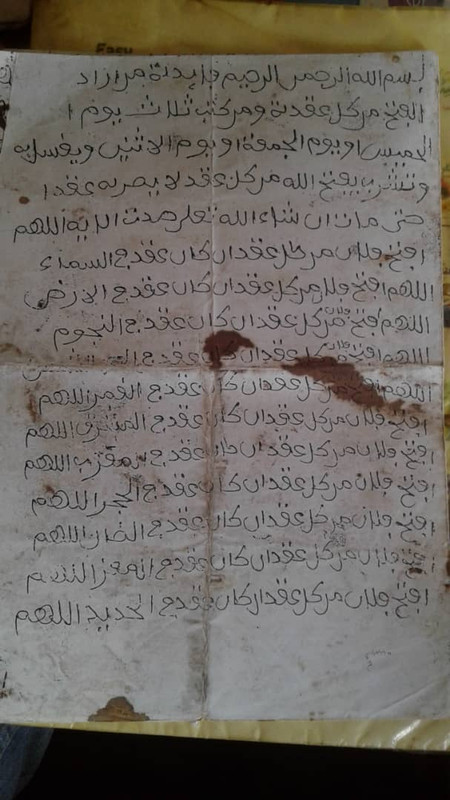 Easy
بسم الله الرحمن الرحيم فايدة من ازاد
الفتح من كل عقدة ومركتبه ثلاث يوم ا
الخميس او يوم الجمعة او يوم الاثنين ويغسل به
وتشرب يفتح الله من كل عقد لا يصربه عقدا
حتى مات ان شاء الله تعلى هذه الاية اللهم
افتح فلان من كل عقدان كان عقد ج السماء
اللهم افتح فلان من كل عقدان كان عقد ج الارض
اللهم افتح فلان من كل عقدان كان عقد ج النجوم
اللهم افتح فلان من كل عقدان كان عقد ج
اللهم افتح من كل عقدان كان عقد ج القمر اللهم
افتح فلان من كل عقدان كان عقد ج المشرق اللهم
افتح فلان من كل عقدان كان عقد ج المغرب اللهم
افتح فلان من كل عقدان كان عقد ج البحر اللهم
افتح فلان من كل عقدان كان عقد ج اللهم
افتح فلان من كل عقدان كان عقد ج
افتح فلان من كل عقدان كان عقد ج الحديد اللهم